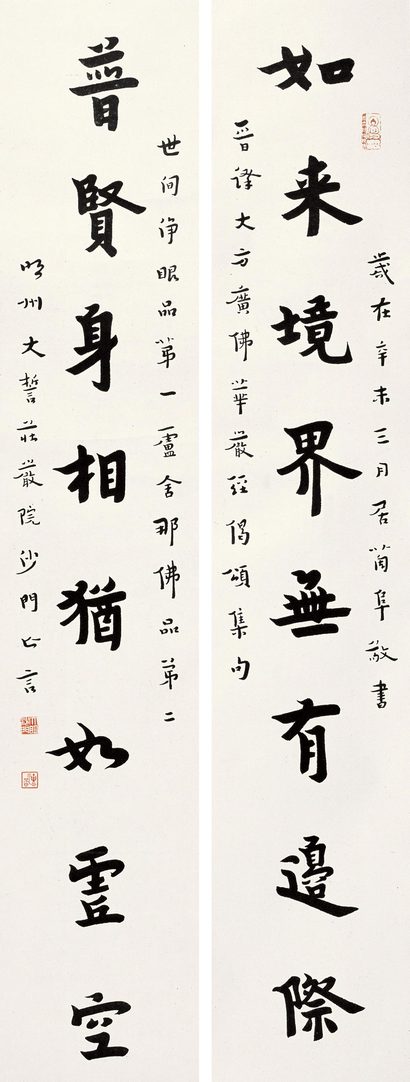 歲在辛未三月居箇阜敬書
如来境界無有邊際
晉譯大方廣佛華嚴經偈頌集句
世间淨眼品第一盧舍那佛品第二
普賢身相猶如虛空
明州大誓莊嚴院沙門亡言